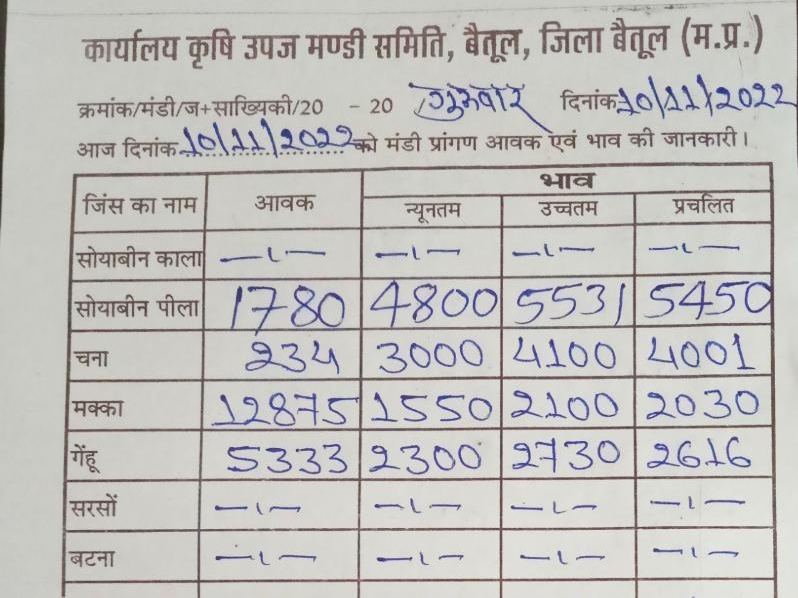 कार्यालय कृषि उपज मण्डी समिति, बैतूल, जिला बैतूल (म.प्र.)
क्रमांक/मंडी/ज+साख्यिकी/20 - 20 गुरुवार दिनांक 10/11/2022
आज दिनांक 10/11/2022 को मंडी प्रांगण आवक एवं भाव की जानकारी।
जिंस का नाम आवक भाव
न्यूनतम उच्चतम प्रचलित
सोयाबीन काला -।- -।- -।- -।-
सोयाबीन पीला 1780 4800 5531 5450
चना 234 3000 4100 4001
मक्का 12875 1550 2100 2030
गेंहू 5333 2300 2730 2616
सरसों -।- -।- -।- -।-
बटना -।- -।- -।- -।-